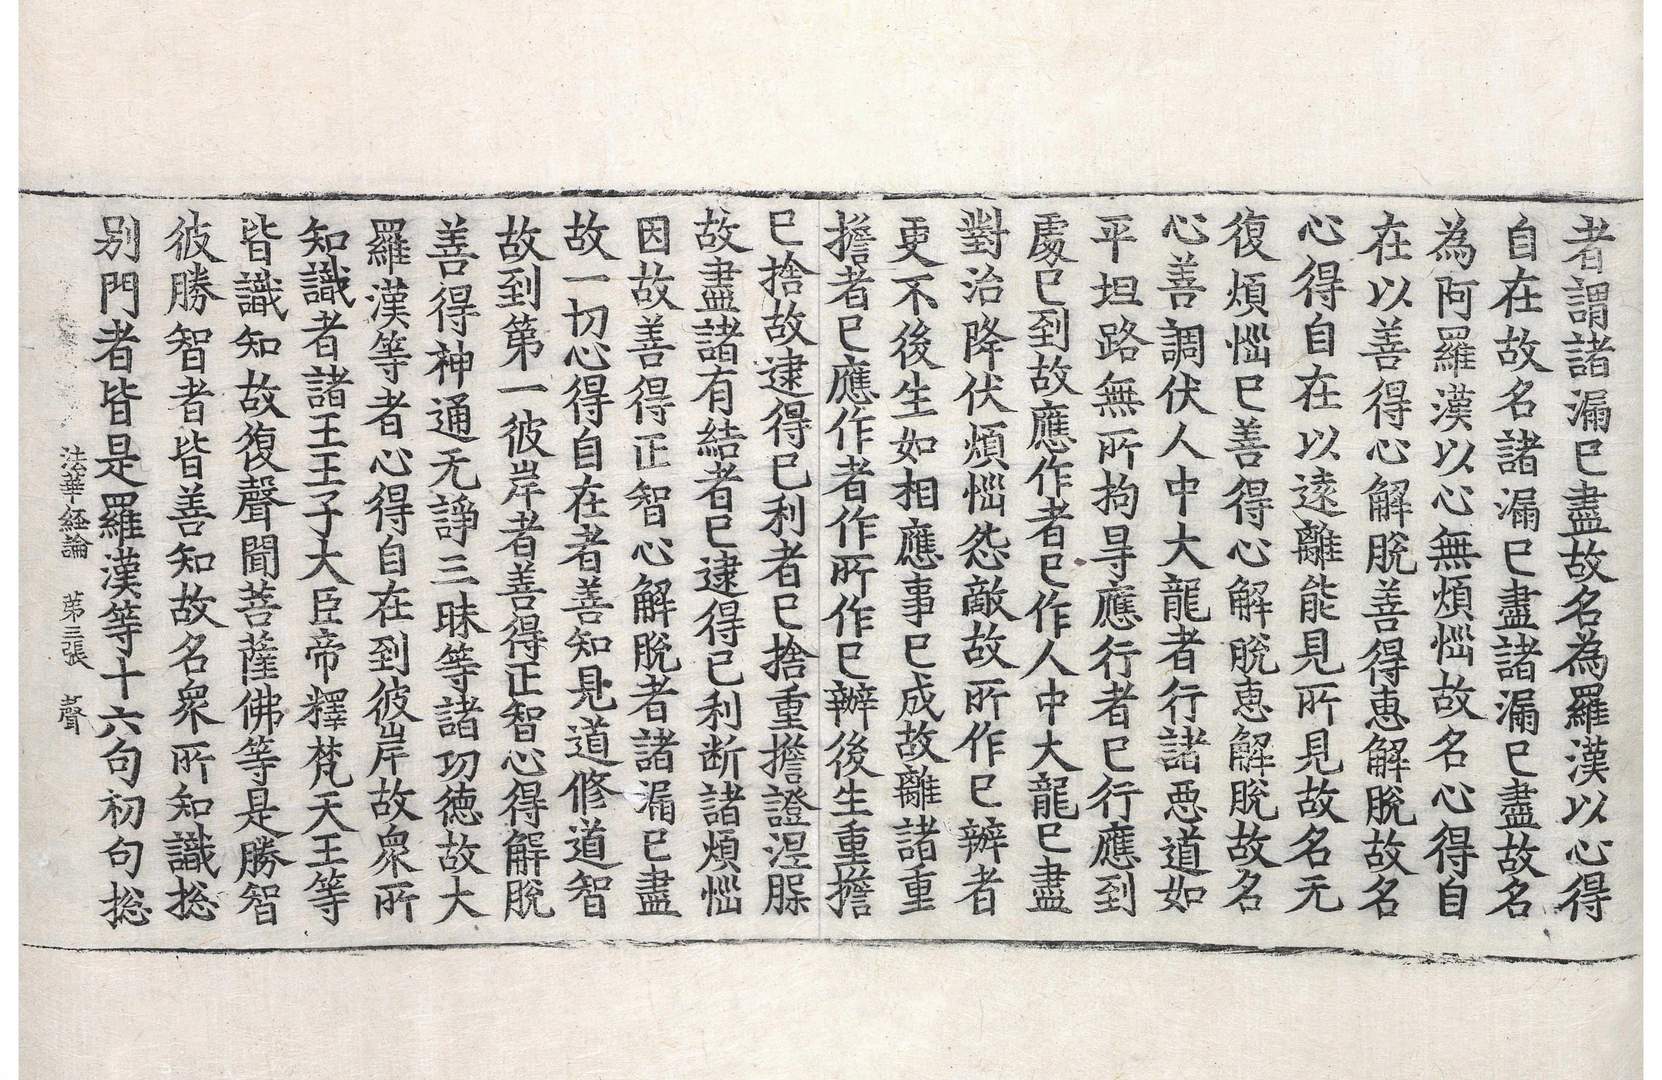 者謂諸漏已盡故名為羅漢以心得
自在故名諸漏已盡諸漏已盡故名
為阿羅漢以心無煩惱故名心得自
在以善得心解脫善得惠解脫故名
心得自在以遠離能見所見故名无
復煩惱已善得心解脫惠解脫故名
心善調伏人中大龍者行諸惡道如
平坦路無所拘㝵應行者已行應到
處已到故應作者已作人中大龍已盡
對治降伏煩惱怨敵故所作已辦者
更不後生如相應事已成故離諸重
擔者已應作者作所作已辦後生重擔
已捨故逮得己利者已捨重擔證涅槃
故盡諸有結者已逮得己利断諸煩惱
因故善得正智心解脫者諸漏已盡
故一切心得自在者善知見道修道智
故到第一彼岸者善得正智心得解脫
善得神通无諍三昧等諸功德故大
羅漢等者心得自在到彼岸故衆所
知識者諸王王子大臣帝釋梵天王等
皆識知故復聲聞菩薩佛等是勝智
彼勝智者皆善知故名衆所知識揔
别門者皆是羅漢等十六句初句揔
法華経論 苐三張 聲